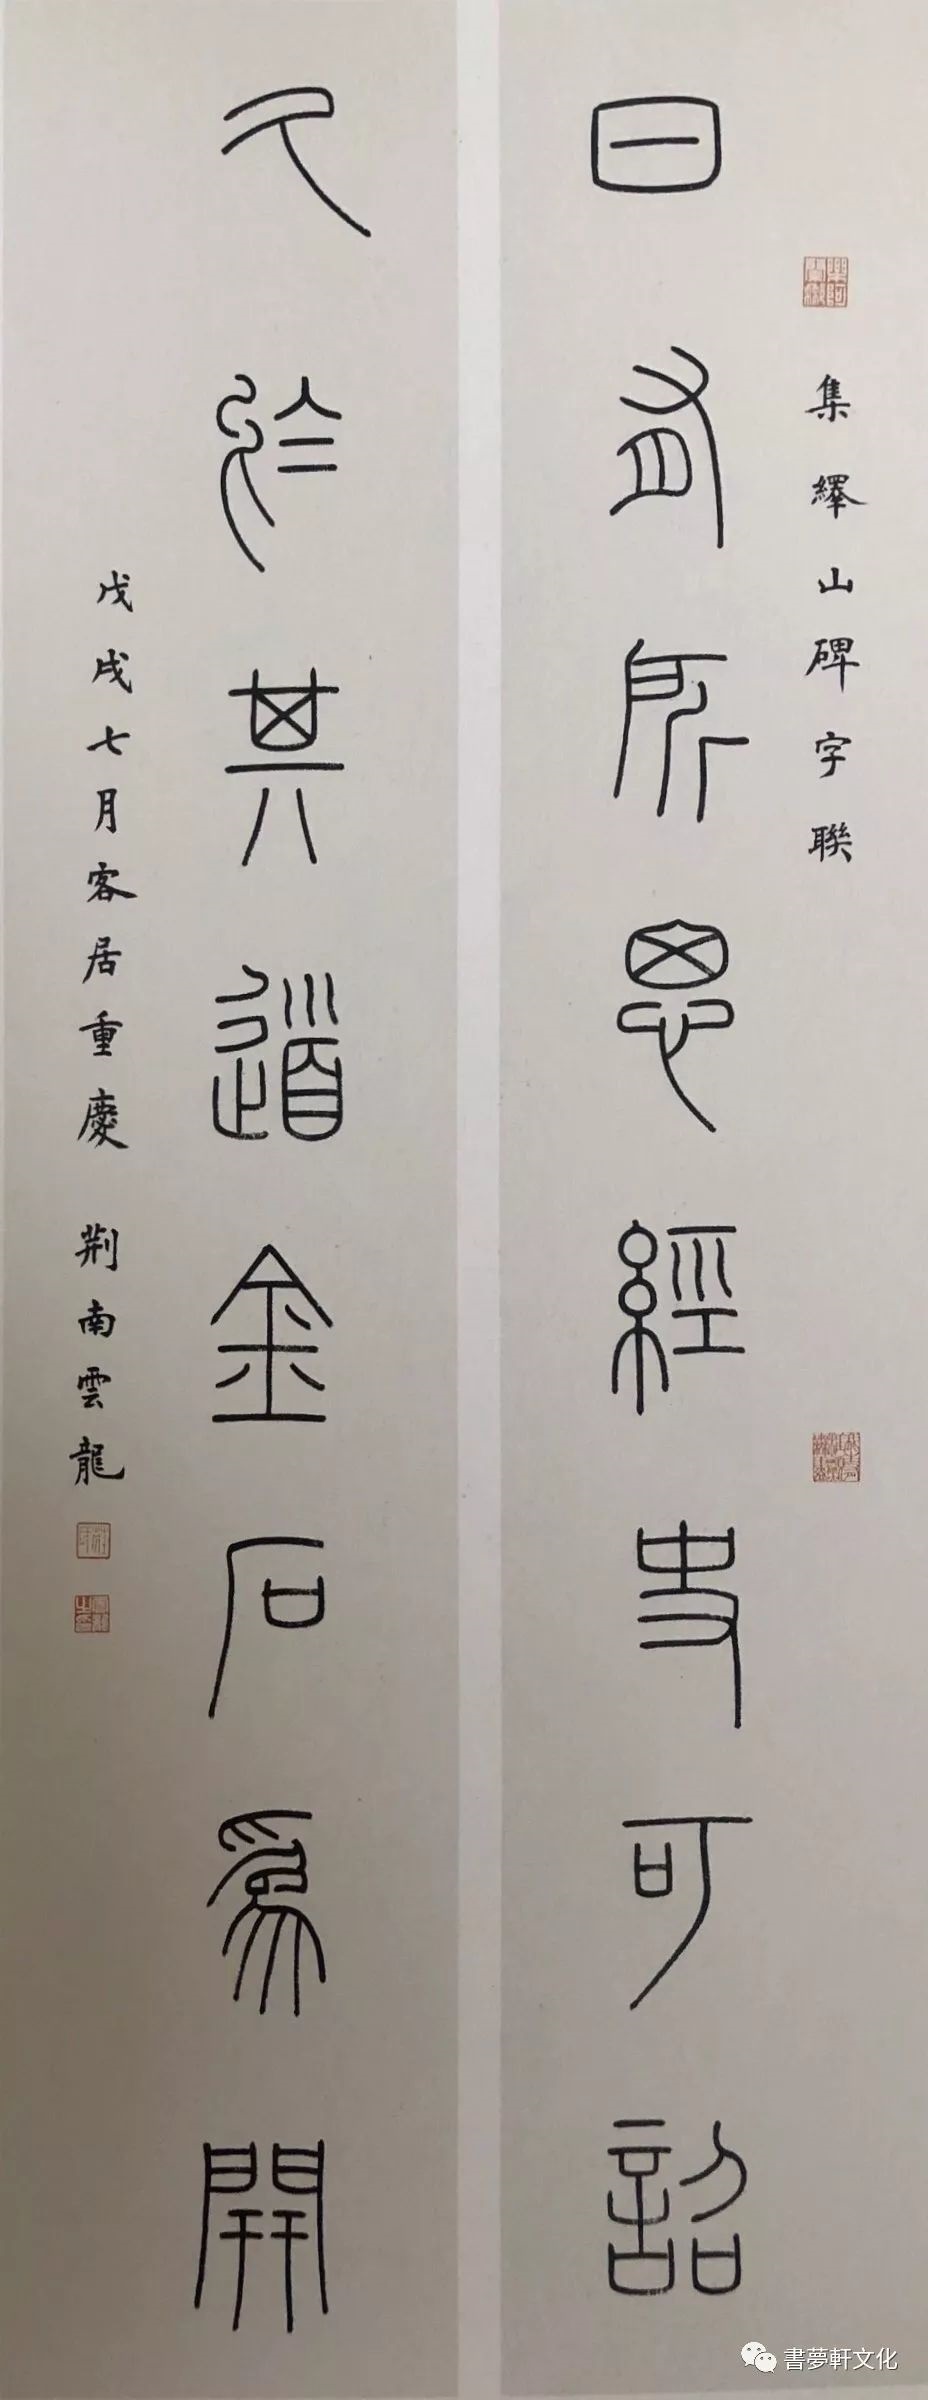 日有所思經史可詔
集繹山碑字聯
久於其道金石爲開
戊戌七月客居重慶 荆南雲龍
書夢軒文化